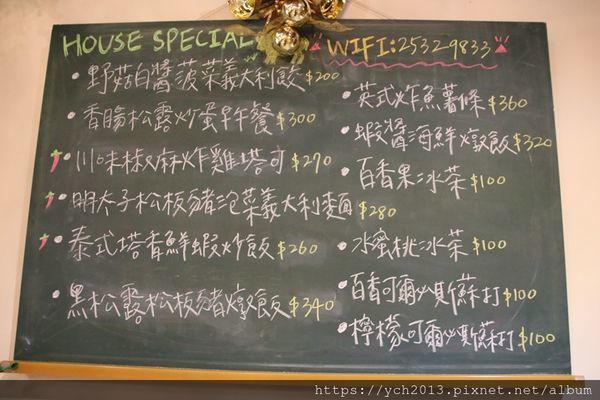 HOUSE SPECIAL
野菇白醬菠菜義大利餃 $200
香腸松露炒蛋早午餐 $300
川味椒麻炸雞塔可 $270
明太子松板豬泡菜義大利麵 $280
泰式塔香鮮蝦炒飯 $260
黑松露松板豬燉飯 $340
WIFI:25329833
英式炸魚薯條 $360
蝦醬海鮮燉飯 $320
百香果冰茶 $100
水蜜桃冰茶 $100
百香可爾必斯蘇打 $100
檸檬可爾必斯蘇打 $100
https://ych2013.pixnet.net/album